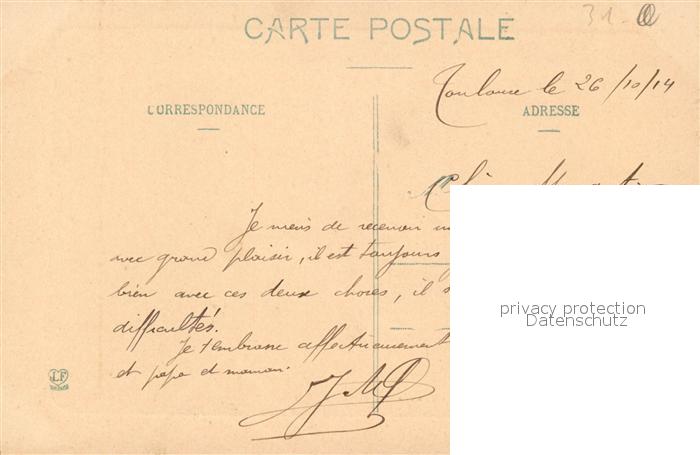 31-
CARTE POSTALE
Toulouse le 26/10/14
CORRESPONDANCE
ADRESSE
Je viens de recevoir
avec grand plaisir, il est toujours
bien avec ces deux choses, il
difficultés.
Je t'embrasse affectueusement
et papa et maman.
LF
privacy protection
Datenschutz